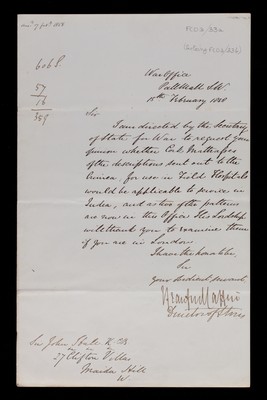 606 S.
57
16
359
War Office
Pall Mall S.W.
15th February 1858
Sir
I am directed by the Secretary
of State for War to request your
opinion whether Cork Mattrasses
of the descriptions sent out to the
Crimea for use in Field Hospitals
would be applicable to service in
India, and as two of the patterns
are now in this Office His Lordship
will thank you to examine them
if you are in London
I have the honor to be
Sir
your obedient servant
Director of Stores
Sir John K.C.B.
27 Clifton Villas
Maida Hill
W.